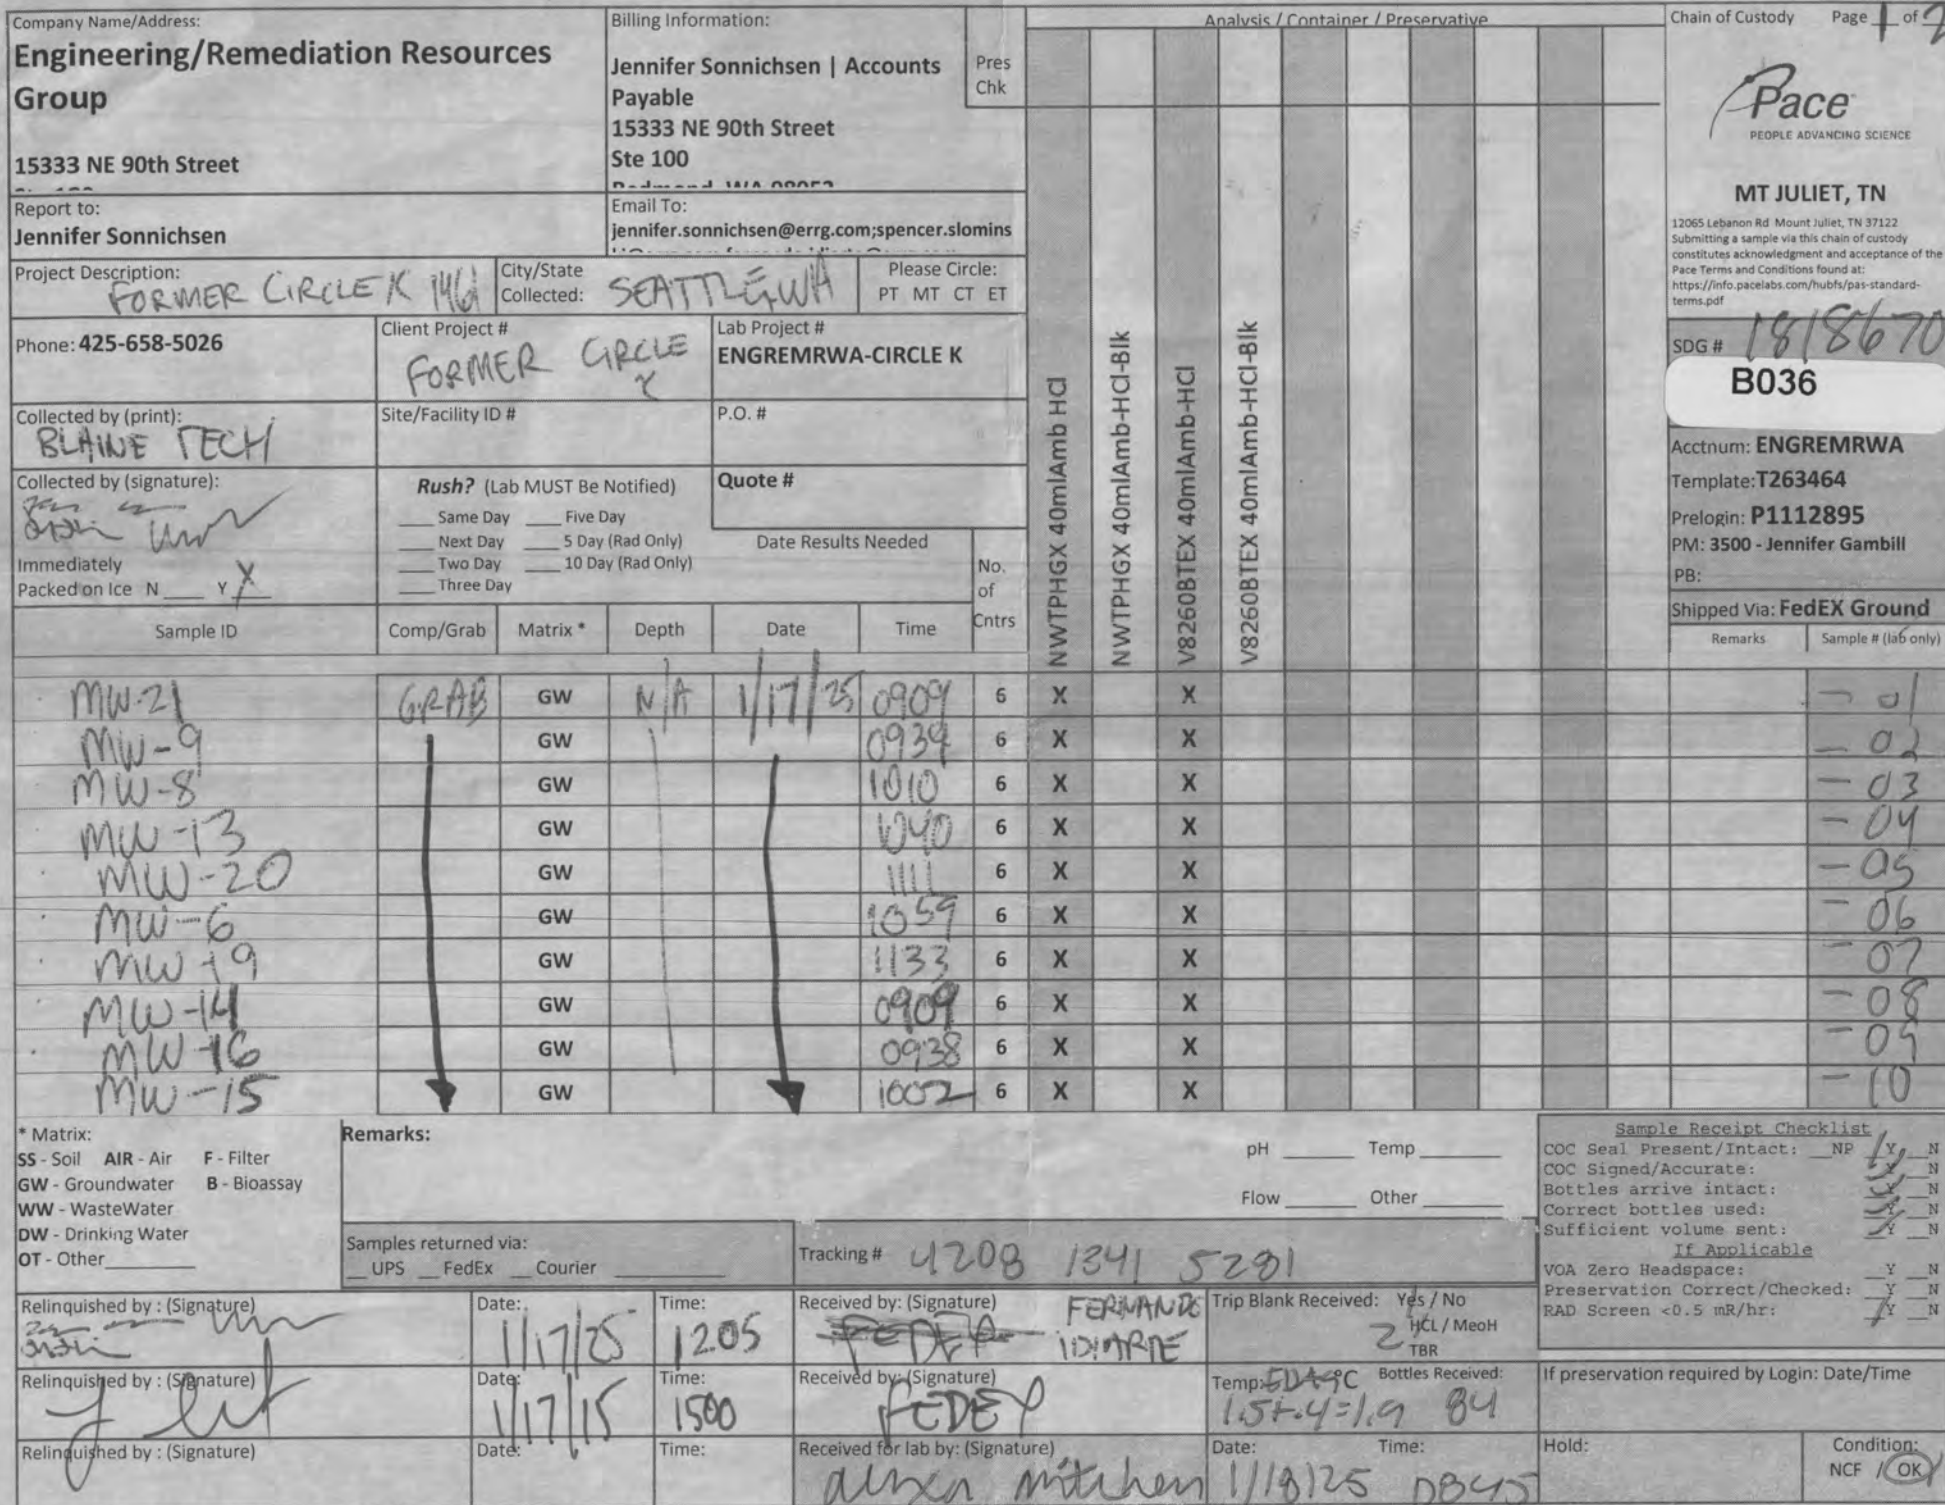 Company Name/Address:
Engineering/Remediation Resources
Group
15333 NE 90th Street
Billing Information:
Jennifer Sonnichsen | Accounts
Payable
15333 NE 90th Street
Ste 100
Pres
Chk
Analysis / Container / Preservative
Chain of Custody Page 1 of 2
Pace
PEOPLE ADVANCING SCIENCE
MT JULIET, TN
12065 Lebanon Rd Mount Juliet, TN 37122
Submitting a sample via this chain of custody
constitutes acknowledgment and acceptance of the
Pace Terms and Conditions found at:
https://info.pacelabs.com/hubfs/pas-standard-
terms.pdf
Report to:
Jennifer Sonnichsen
Email To:
jennifer.sonnichsen@errg.com;spencer.slomins
Project Description:
FORMER CIRCLE K 1461
City/State
Collected:
SEATTLE, WA
Please Circle:
PT MT CT ET
Phone: 425-658-5026
Client Project #
FORMER CIRCLE
K
Lab Project #
ENGREMRWA-CIRCLE K
SDG # 1818670
B036
Collected by (print):
BLAINE TECH
Site/Facility ID #
P.O. #
Acctnum: ENGREMRWA
Template:T263464
Prelogin: P1112895
PM: 3500 - Jennifer Gambill
PB:
Shipped Via: FedEX Ground
Collected by (signature):
Rush? (Lab MUST Be Notified)
___ Same Day ___ Five Day
___ Next Day ___ 5 Day (Rad Only)
___ Two Day ___ 10 Day (Rad Only)
___ Three Day
Quote #
Date Results Needed
Immediately
Packed on Ice N ___ Y X
No.
of
Cntrs
NWTPHGX 40mlAmb HCl
NWTPHGX 40mlAmb-HCl-Blk
V8260BTEX 40mlAmb-HCl
V8260BTEX 40mlAmb-HCl-Blk
Sample ID Comp/Grab Matrix * Depth Date Time Remarks Sample # (lab only)
MW-21 GRAB GW N/A 1/17/25 0909 6 X X - 01
MW-9 GW 0939 6 X X - 02
MW-8 GW 1010 6 X X - 03
MW-13 GW 1040 6 X X - 04
MW-20 GW 1111 6 X X - 05
MW-6 GW 1059 6 X X - 06
MW-19 GW 1133 6 X X - 07
MW-14 GW 0909 6 X X - 08
MW-16 GW 0938 6 X X - 09
MW-15 GW 1002 6 X X - 10
* Matrix:
SS - Soil AIR - Air F - Filter
GW - Groundwater B - Bioassay
WW - WasteWater
DW - Drinking Water
OT - Other
Remarks:
pH ___ Temp ___
Flow ___ Other ___
Samples returned via:
__ UPS __ FedEx __ Courier
Tracking # 4208 1341 5281
Sample Receipt Checklist
COC Seal Present/Intact: __NP Y __N
COC Signed/Accurate: Y __N
Bottles arrive intact: Y __N
Correct bottles used: Y __N
Sufficient volume sent: Y __N
If Applicable
VOA Zero Headspace: __Y __N
Preservation Correct/Checked: __Y __N
RAD Screen <0.5 mR/hr: Y __N
Relinquished by : (Signature)
Date: 1/17/25
Time: 1205
Received by: (Signature)
FEDEX
FERNANDO
IDIARTE
Trip Blank Received: Yes / No
2 HCL / MeoH
TBR
Relinquished by : (Signature)
Date: 1/17/15
Time: 1500
Received by: (Signature)
FEDEX
Temp: °C
1.5+.4=1.9
Bottles Received:
84
If preservation required by Login: Date/Time
Relinquished by : (Signature)
Date:
Time:
Received for lab by: (Signature)
Date: 1/18/25
Time: 0845
Hold:
Condition:
NCF / OK